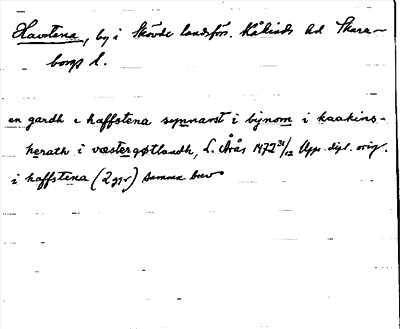 Havstena, by i Skövde landsförs. Kåkinds hd Skara-
borgs l.
en gardh i haffstena synnarst i bynom i kaakins-
herath i væstergøtlandh, L. Årås 1472 31/12 Upps. dipl. orig.
i haffstena (2 ggr) samma brev